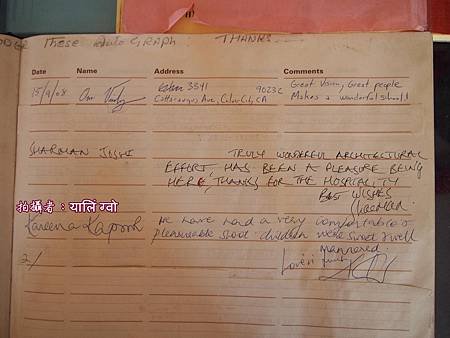 THESE AUTOGRAPH. THANKS
Date Name Address Comments
15/9/08 3541 90232 Great Vision, Great people
Cattaraugus Ave, Culver City, CA Makes a wonderful school!
SHARMAN JOSHI TRULY WONDERFUL ARCHITECTURAL
EFFORT, HAS BEEN A PLEASURE BEING
HERE, THANKS FOR THE HOSPITALITY
BEST WISHES
拍攝者：यालिं ग्वो
Kareena Kapoor We have had a very comfortable &
pleasurable shoot - children were sweet & well
mannered.
2/ Love'n